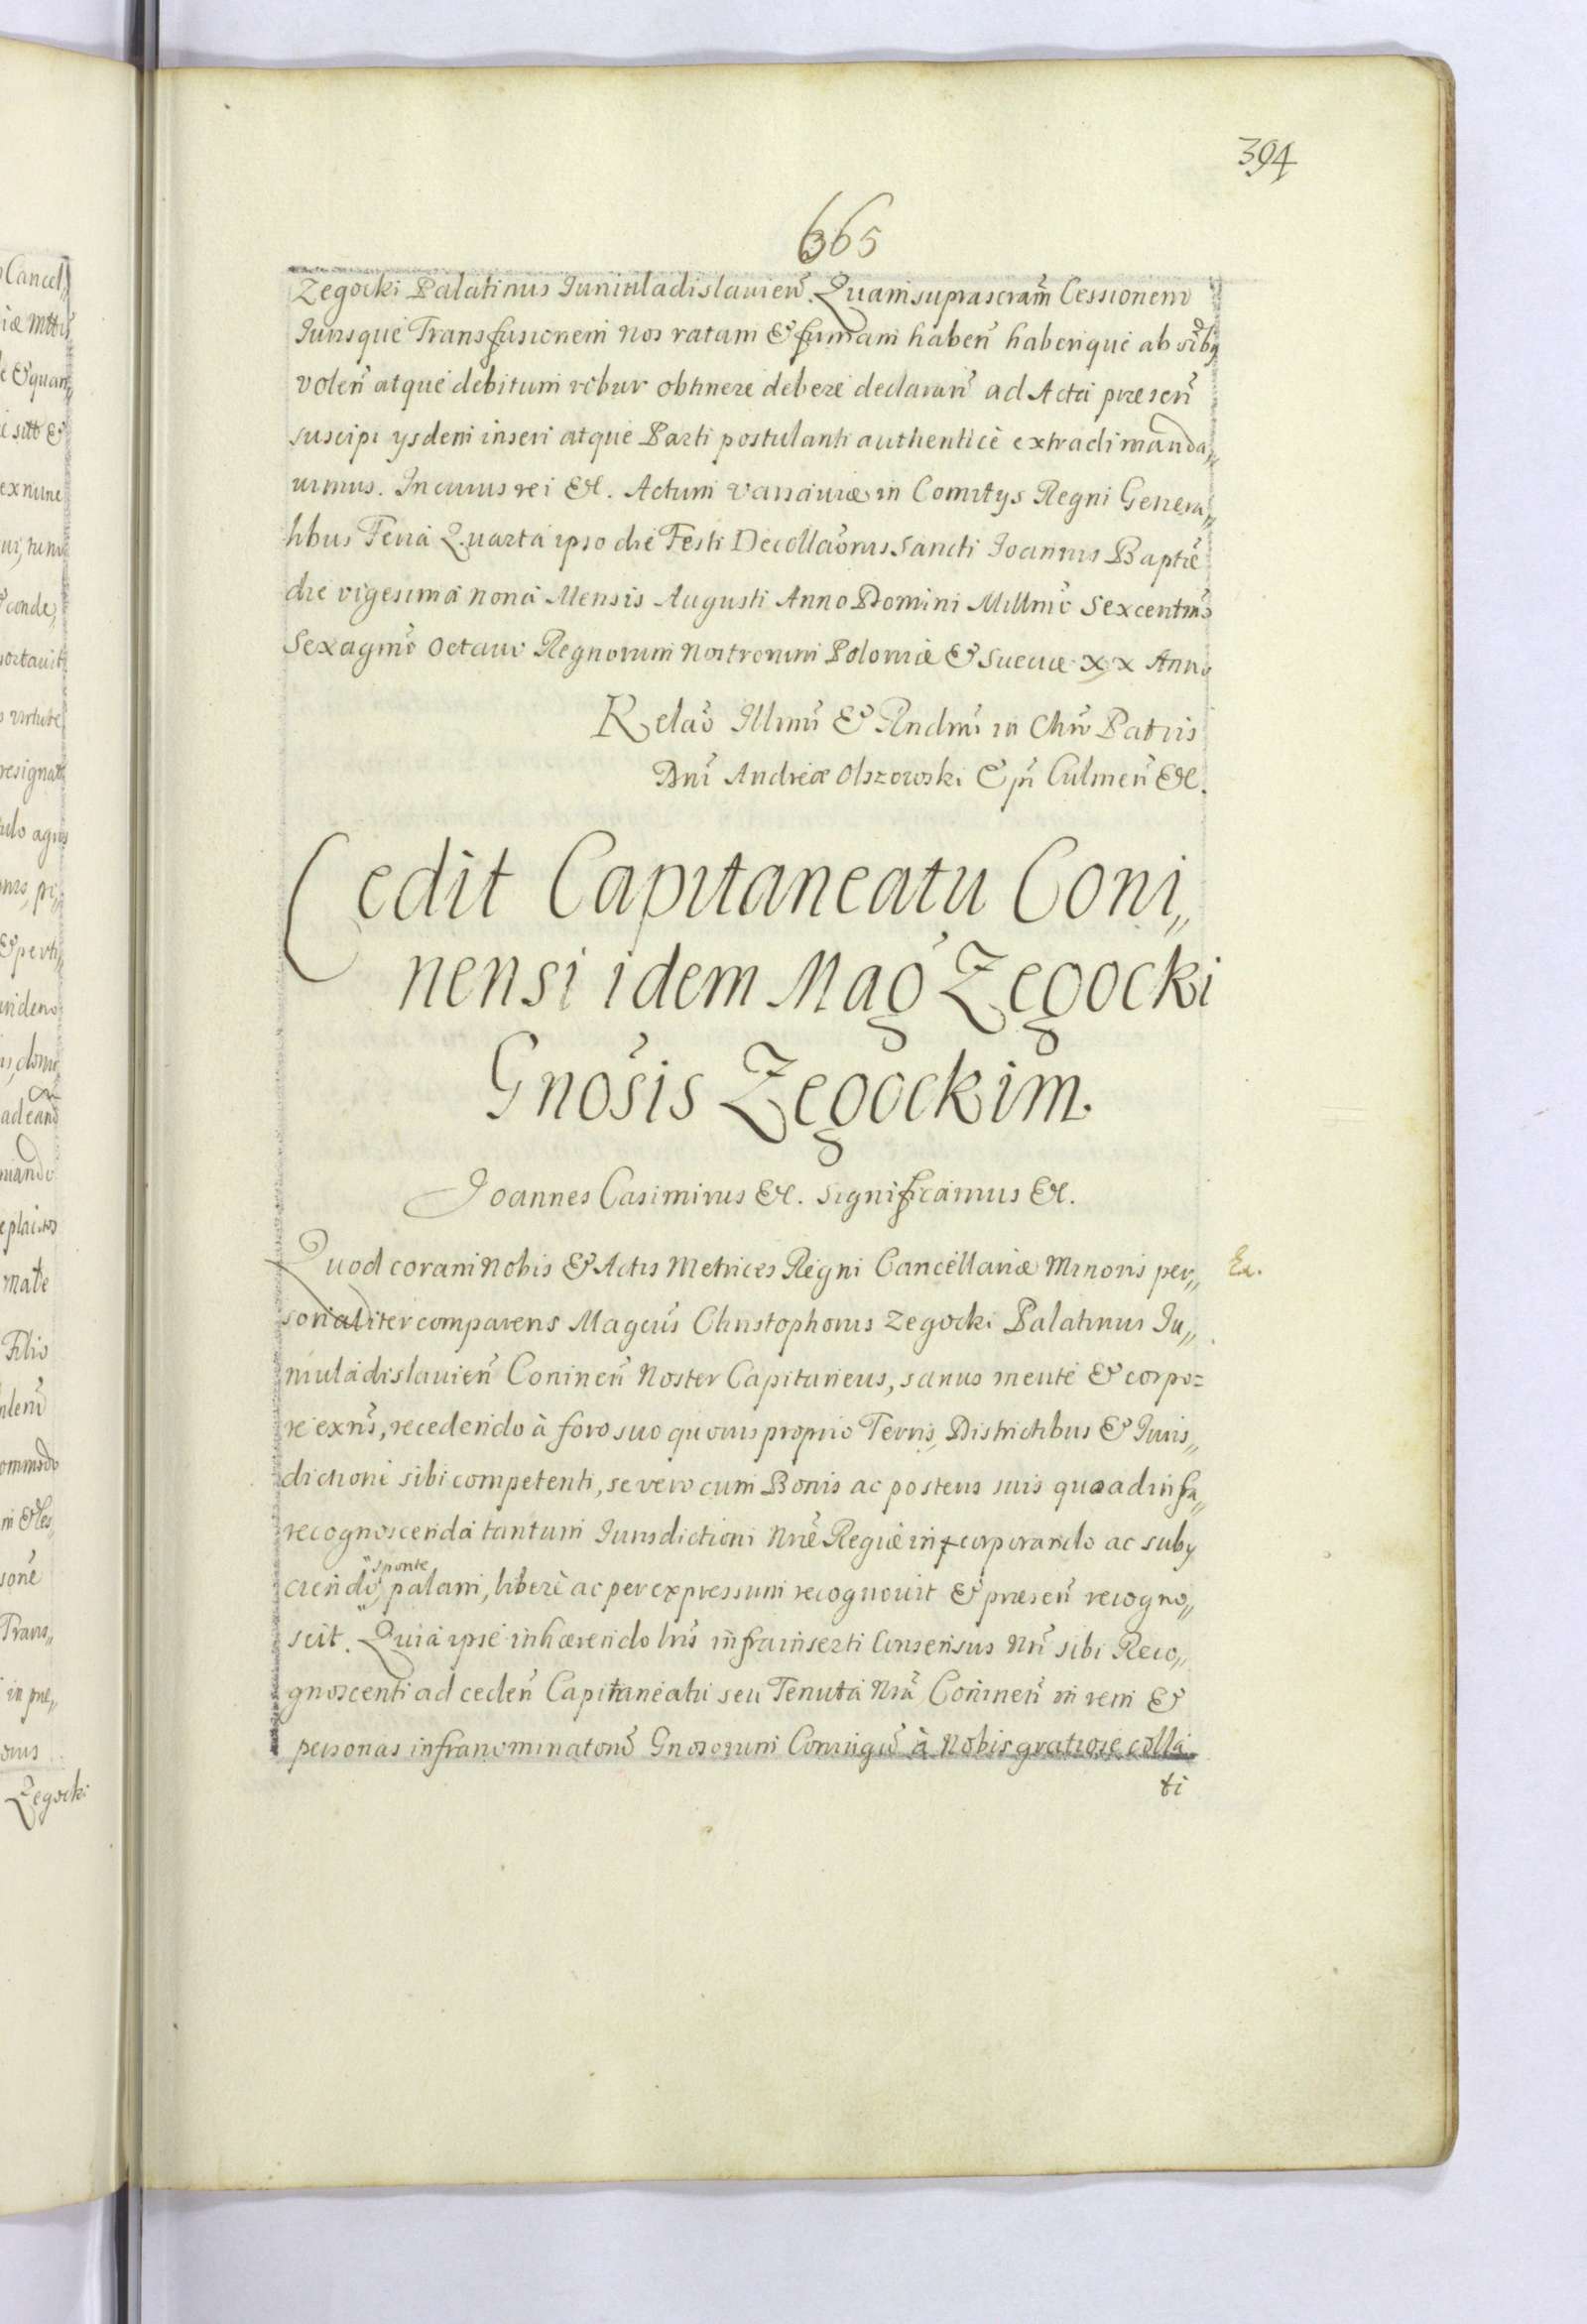 394
665
Zegocki Palatinus Iuniuladislauien̄. Quam suprascram̄ Cessionem
Iurisque Transfusionem nos ratam & firmam haben̄ haberique ab
volen̄ atque debitum robur obtinere debere declaran̄ ad Acta præsen̄
suscipi ysdem inseri atque Parti postulanti authenticè extradi manda„
uimus. In cuius rei &c. Actum Varsauiæ in Comitys Regni Genera„
libus Feria Quarta ipso die Festi Decollaōnis Sancti Joannis Baptǣ
die vigesima nona Mensis Augusti Anno Domini Millmō Sexcentmō
Sexagmō Octauo Regnorum Nostrorum Poloniæ & Sueciæ XX Anno
Relaō Illmī & Rndmī in Chrō Patris
Dnī Andreæ Olszowski Epī Culmen̄ &c.
Cedit Capitaneatu Coni„
nensi idem Maḡ Zegocki
Gnōsis Zegockim.
Joannes Casimirus &c. Significamus &c.
Quod coram Nobis & Actis Metrices Regni Cancellariæ Minoris per„
Ex.
sonaliter comparens Magcūs Christophorus Zegocki Palatinus Iu„
niuladislauien̄ Coninen̄ Noster Capitaneus, sanus mente & corpo=
re exn̄s, recedendo à foro suo quouis proprio Terris, Districtibus & Iuris„
dictioni sibi competenti, se vero cum Bonis ac posteris suis quo ad infra„
recognoscenda tantum Iurisdictioni Nr̄æ Regiæ incorporando ac suby
sponte
ciendo, palam, liberè ac per expressum recognouit & præsen̄ recogno„
scit. Quia ipse inhærendo lrīs infrainserti Consensus Nrī sibi Reco„
gnoscenti ad ceden̄ Capitaneatu seu Tenuta Nrā Coninen̄ in rem &
personas infranominatorū Gnosorum Coniugū à Nobis gratiose colla
ti